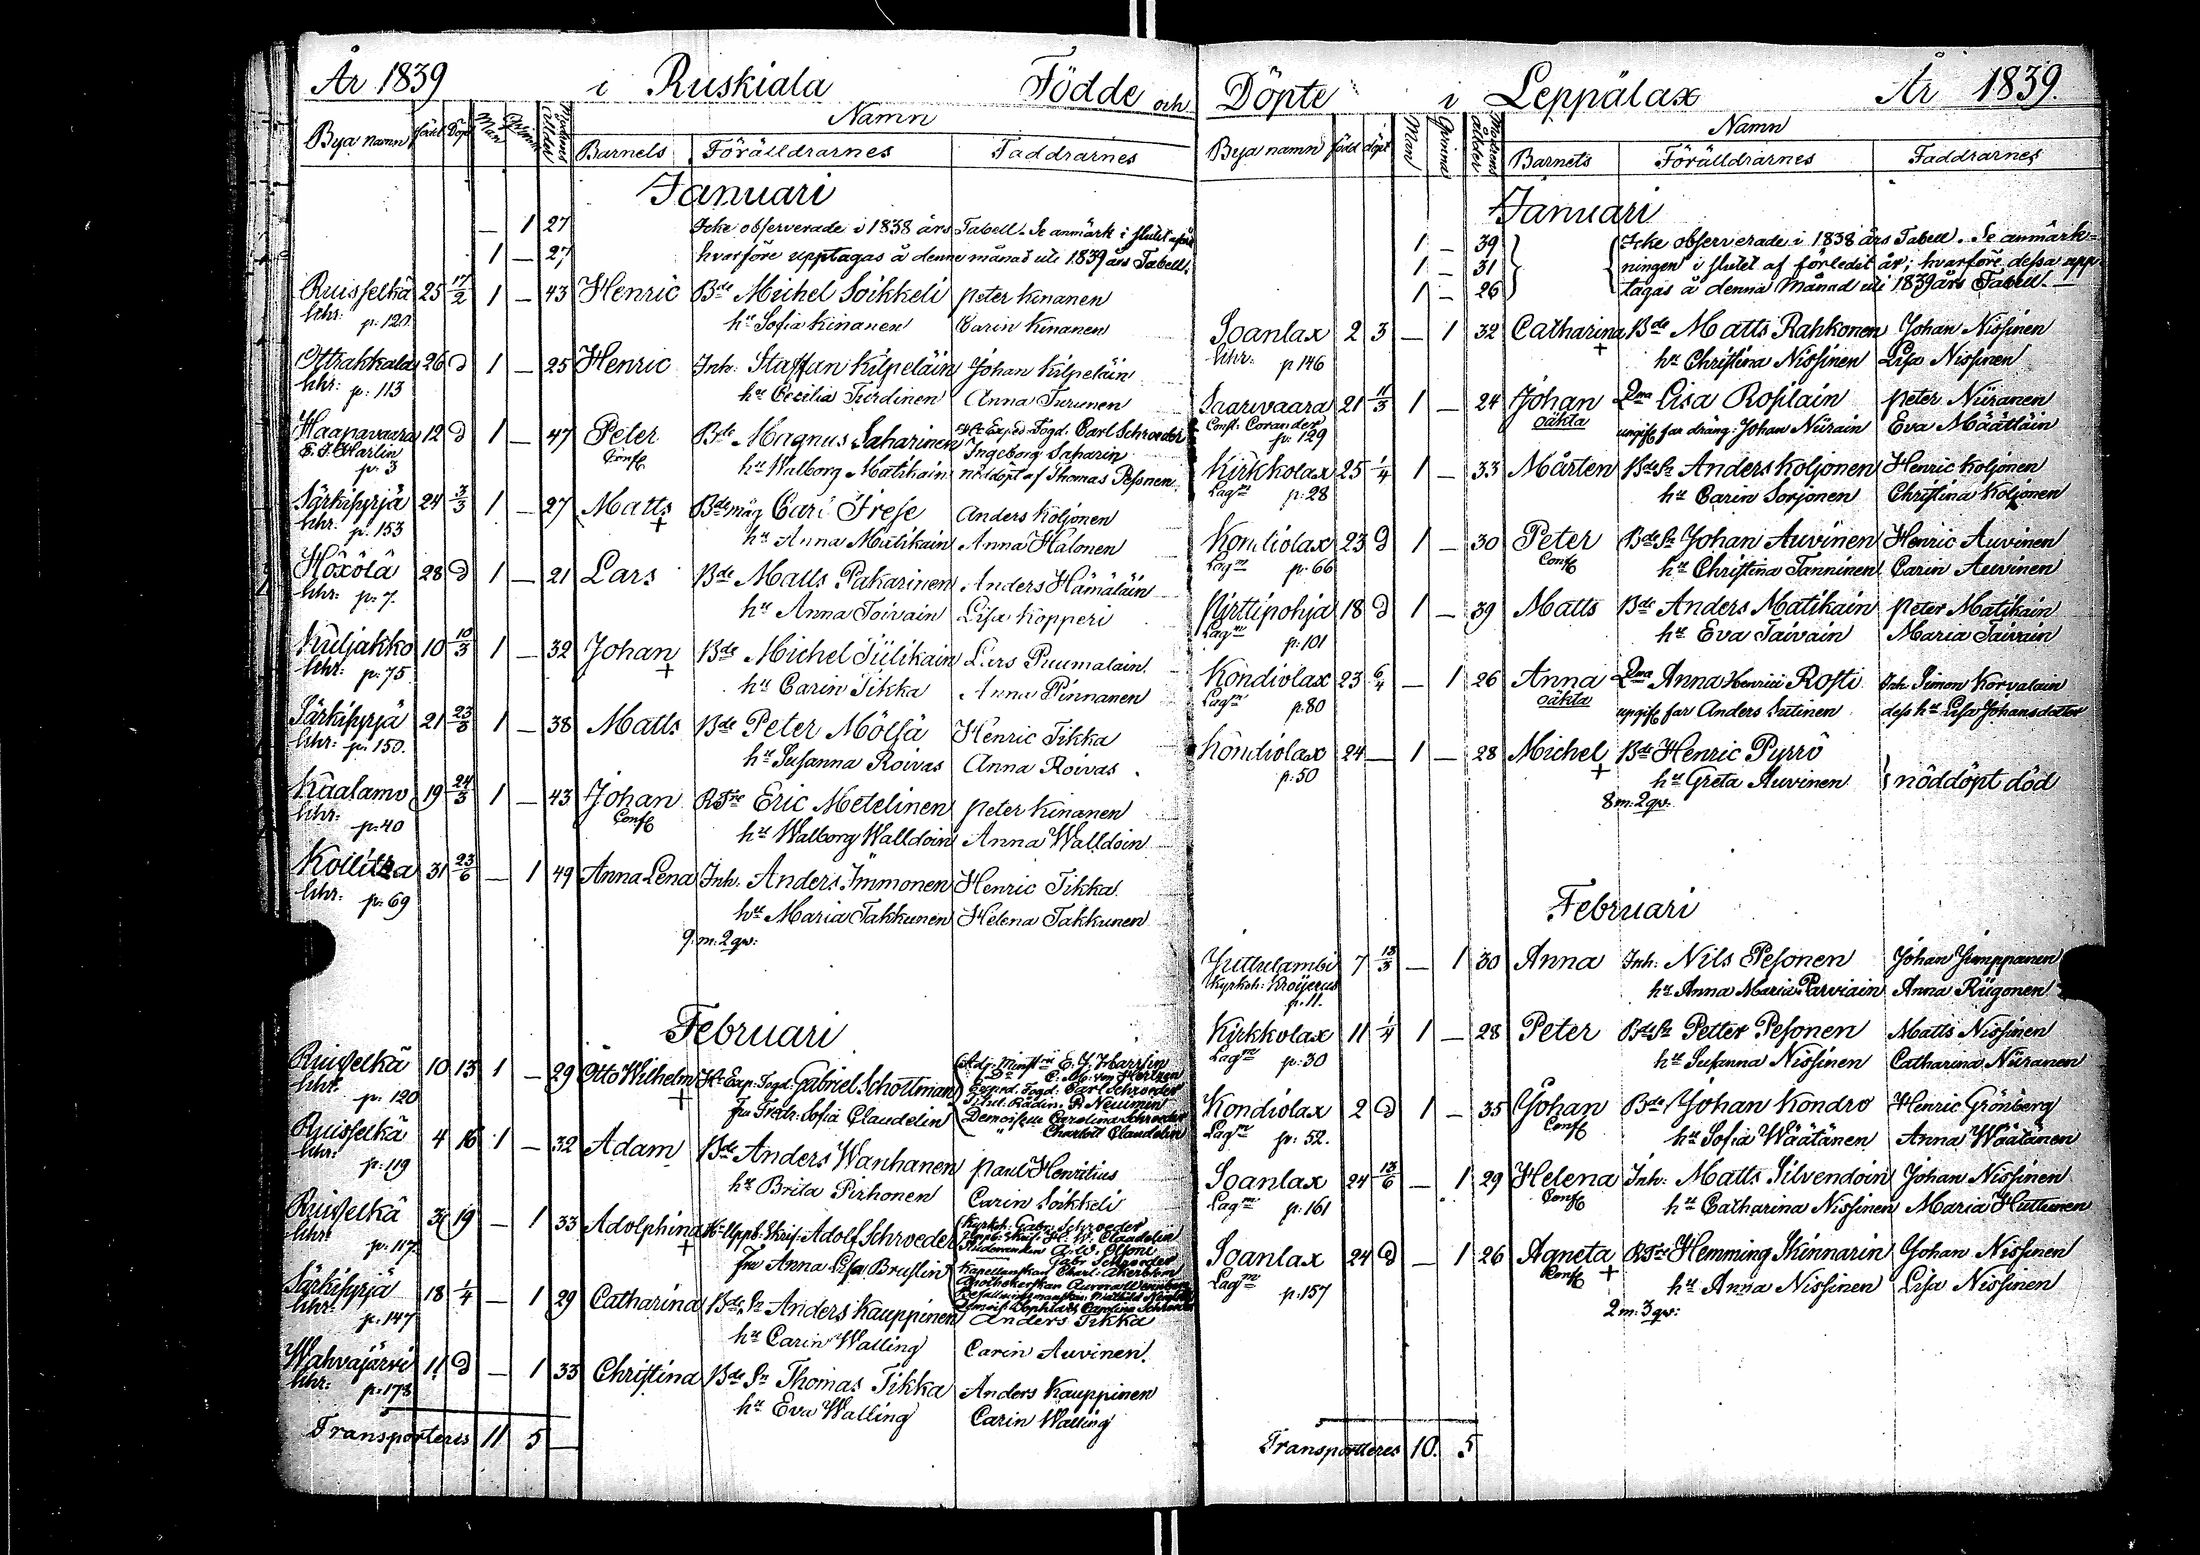 År 1839 i Ruskiala Födde och
Bya namn födde Döpte Man Qvin Modrens ållder Namn
Barnets Förälldrarnes Faddrarnes
Januari
— 1 27 Icke observerade i 1838 års Tabell. Se anmärk i slutet
1 — 27 hvarföre upptagas å denne månad uti 1839 års Tabell.
Ruisselkä 25 17/2 1 — 43 Henric Bde Michel Soikkeli Peter Kinanen
lihr: p: 120. hu Sofia Kinanen Carin Kinanen
Ottrakkala 26 d 1 — 25 Henric Inh: Staffan Kilpeläin Johan Kilpeläin
lihr: p: 113 hu Cecilia Turdinen Anna Turunen
Haapavaara 12 d 1 — 47 Peter Bde Magnus Saharinen Exped: Fogd. Carl Schroeder
E. J. Harlin Conf Ingeborg Saharin
p: 3 hu Walborg Matikain nöddöpt af Thomas Pesonen
Särkisyrjä 24 3/3 1 — 27 Matts Bde måg Carl Frese Anders Koljonen
lihr: p: 153 + hu Anna Matikain Anna Halonen
Höxölä 28 d 1 — 21 Lars Bde Matts Pakarinen Anders Hämäläin
lihr: p: 7. hu Anna Toivain Lisa Kopperi
Kuljakko 10 10/3 1 — 32 Johan Bde Michel Tülikain Lars Puumalain
lihr: p: 75. + hu Carin Tikka Anna Pinnanen
Särkisyrjä 21 23/3 1 — 38 Matts Bde Peter Mölsä Henric Tikka
lihr: p: 150. hu Susanna Roivas Anna Roivas
Kaalamo 19 24/3 1 — 43 Johan RFre Eric Metelinen Peter Kinanen
lihr: p: 40 Conf hu Walborg Walldoin Anna Walldoin
Koilitza 31 23/6 — 1 49 Anna Lena Inh. Anders Immonen Henric Tikka
lihr: p: 69 hu Maria Takkunen Helena Takkunen
9. m: 2 qv:
Februari
Ruisselkä 10 13 1 — 29 Otto Wilhelm Exp: Fogd. Gabriel Schottman Adj: Minist E. J. Harlin
lihr. + Exped. Fogd. Carl Schroeder
p: 120 fru Fredr: Sofia Claudelin Demoiselle Carolina Schroeder
" Charlott Claudelin
Ruisselkä 4 16 1 — 32 Adam Bde Anders Wanhanen Paul Henritius
lihr: p: 119 hu Brita Pirhonen Carin Soikkeli
Ruisselkä 31 19 — 1 33 Adolphina Uppb: Skrif: Adolf Schroeder Kyrkoh: Gabr: Schroeder
lihr: p: 117. + fru Anna Lisa Bruslin
Särkisyrjä 18 1/4 — 1 29 Catharina Bde Sn Anders Kauppinen Anders Tikka
lihr: p: 147 hu Carin Walling Carin Auvinen.
Wahvajärvi 11 d — 1 33 Christina Bde Sn Thomas Tikka Anders Kauppinen
lihr: p: 178 hu Eva Walling Carin Walling
Transporteres 11 5 —
Döpte i Leppälax År 1839.
Bya namn född döpt Man Qvinna Modrens ållder Namn
Barnets Förälldrarnes Faddrarnes
Januari
1 — 39 Icke observerade i 1838 års Tabell. Se anmärk-
1 — 31 ningen i slutet af förledit år; hvarföre dessa upp-
1 — 26 tagas å denna Månad uti 1839 års Tabell. —
Soanlax 2 3 — 1 32 Catharina Bde Matts Rahkonen Johan Nissinen
lihr: p 146 + hu Christina Nissinen Lisa Nissinen
Saarivaara 21 11/3 1 — 24 Johan Qna Lisa Rossläin Peter Niiranen
Confl: Corander p: 129 oäkta ungift far dräng: Johan Niirain Eva Määttäin
Kirkkolax 25 1/4 1 — 33 Mårten Bde Sn Anders Koljonen Henric Koljonen
Lagm p: 28 hu Carin Sorjonen Christina Koljonen
Kondiolax 23 d 1 — 30 Peter Bde Sn Johan Auvinen Henric Auvinen
Lagm p: 66 Conf hu Christina Tanninen Carin Auvinen
Pirttipohja 18 d 1 — 39 Matts Bde Anders Matikain Peter Matikain
Lagm p: 101 hu Eva Taivain Maria Taivain
Kondiolax 23 6/4 — 1 26 Anna Qna Anna Henrici Rosti Inh. Simon Korvalain
Lagm p. 80 oäkta ungift far Anders Sutinen dess hu Lisa Johansdotter
Kondiolax 24 — 1 — 28 Michel Bde Henric Pyrrö
p: 50 + hu Greta Auvinen nöddöpt död
8 m: 2 qv:
Februari
Juttulambi 7 13/3 — 1 30 Anna Inh: Nils Pesonen Johan Jumppanen
Kyrkoh: Kröijerus p. 11. hu Anna Maria Parviain Anna Riigonen
Kirkkolax 11 1/4 1 — 28 Peter Bde Sn Petter Pesonen Matts Nissinen
Lagm p: 30 hu Susanna Nissinen Catharina Niiranen
Kondiolax 2 d 1 — 35 Johan Bde Johan Kondro Henric Grönberg
Lagm p: 52. Conf hu Sofia Wäätänen Anna Wäätänen
Soanlax 24 13/6 — 1 29 Helena Inh: Matts Silvendoin Johan Nissinen
Lagm p: 161 Conf hu Catharina Nissinen Maria Huttunen
Soanlax 24 d — 1 26 Agneta RFre Hemming Skinnarin Johan Nissinen
Lagm p: 157 Conf + hu Anna Nissinen Lisa Nissinen
2 m: 3 qv:
Transporteres 10. 5